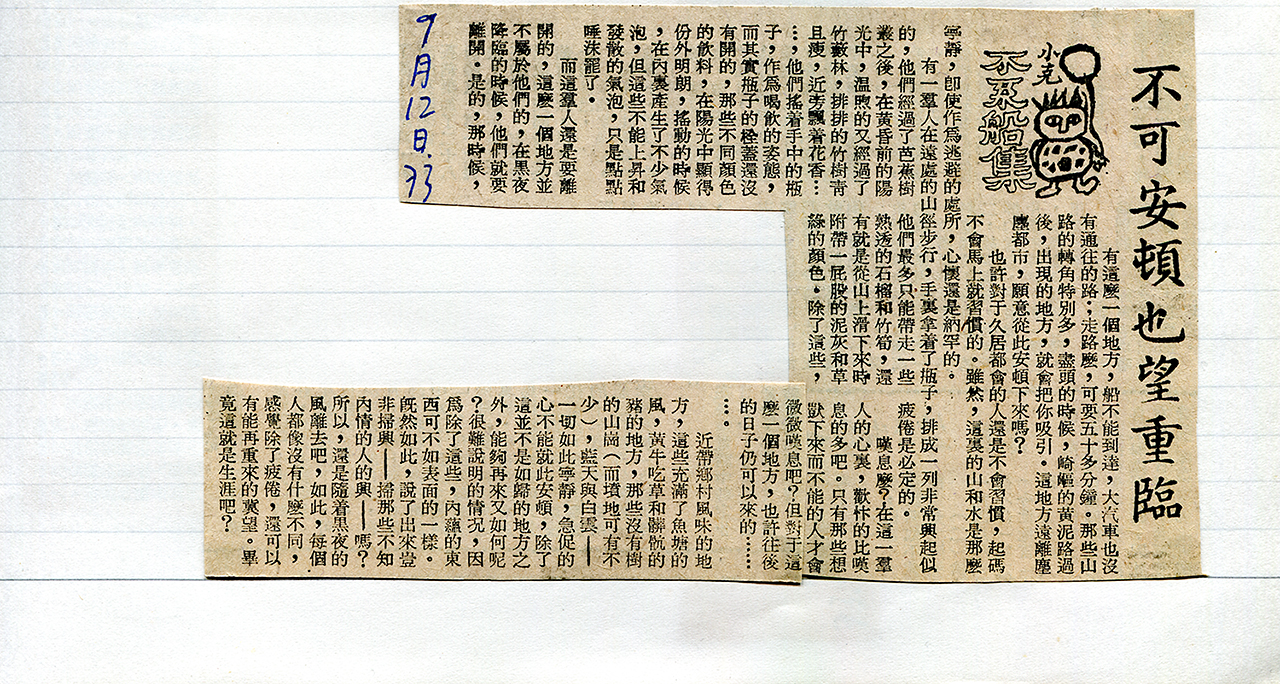 不可安頓也望重臨
小克
不系船集
有這麼一個地方，船不能到達，大汽車也沒
有通往的路；走路麼，可要五十多分鐘。那些山
路的轉角特別多，盡頭的時候，崎嶇的黃泥路過
後，出現的地方，就會把你吸引。這地方遠離塵
塵都市，願意從此安頓下來嗎？
也許對于久居都會的人還是不會習慣，起碼
不會馬上就習慣的。雖然，這裏的山和水是那麼
寧靜，卽使作爲逃避的處所，心懷還是納罕的。
有一羣人在遠處的山徑步行，手裏拿着了瓶子，排成一列非常興起似
的，他們經過了芭蕉樹
叢之後，在黃昏前的陽
光中，溫煦的又經過了
竹籔林，排排的竹樹靑
且瘦，近旁飄着花香…
…，他們搖着手中的瓶
子，作爲喝飲的姿態，
而其實瓶子的栓蓋還沒
有開的，那些不同顏色
的飲料，在陽光中顯得
份外明朗，搖動的時候
，在內裏產生了不少氣
泡，但這些不能上昇和
發散的氣泡，只是點點
唾沫罷了。
而這羣人還是要離
開的，這麼一個地方並
不屬於他們的，在黑夜
降臨的時候，他們就要
離開。是的，那時候，
他們最多只能帶走一些
熟透的石榴和竹筍，還
有就是從山上滑下來時
附帶一屁股的泥灰和草
綠的顏色。除了這些，
疲倦是必定的。
嘆息麼？在這一羣
人的心裏，歡忭的比嘆
息的多吧。只有那些想
獃下來而不能的人才會
微微嘆息吧？但對于這
麼一個地方，也許往後
的日子仍可以來的……
…。
近帶鄉村風味的地
方，這些充滿了魚塘的
風，黃牛吃草和髒骯的
豬的地方，那些沒有樹
的山崗（而墳地可有不
少），藍天與白雲——
一切如此寧靜，急促的
心不能就此安頓，除了
這並不是如歸的地方之
外，能夠再來又如何呢
？很難說明的情況，因
爲除了這些，內蘊的東
西可不如表面的一樣。
旣然如此，說了出來豈
非掃興——掃那些不知
內情的人的興——嗎？
所以，還是隨着黑夜的
風離去吧，如此，每個
人都像沒有什麼不同，
感覺除了疲倦，還可以
有能再重來的冀望。畢
竟這就是生涯吧？
9月12日.73